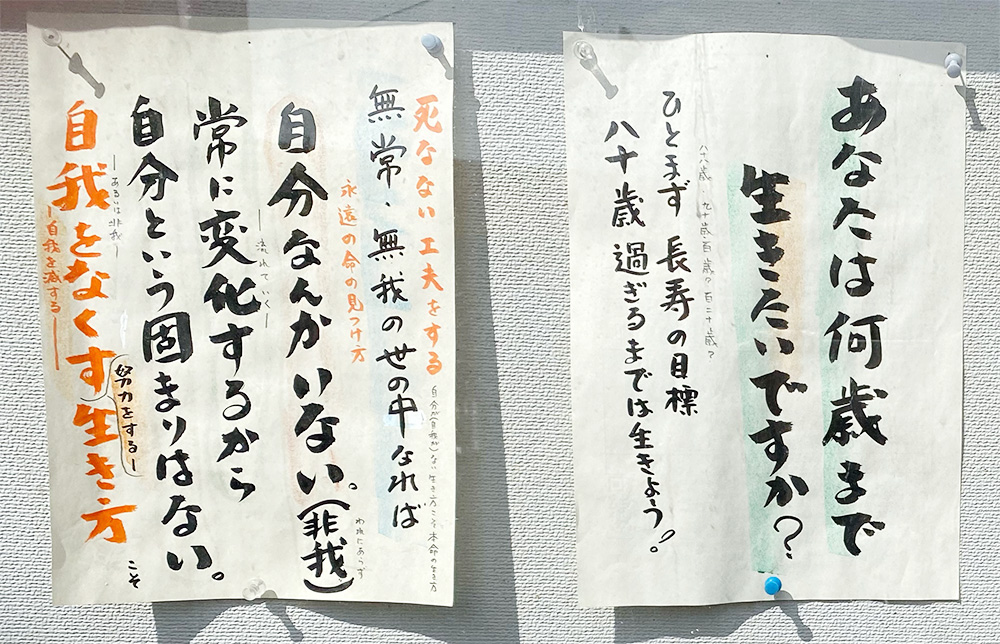 あなたは何歳まで
生きたいですか?
八十八歳?九十歳百歳?百二十歳?
ひとまず 長寿の目標
八十歳 過ぎるまでは生きよう。
死なない工夫をする
自分が(自我が)ない生き方こそ本命の生き方
無常・無我の世の中なれば
永遠の命の見つけ方
自分なんかいない。(非我)
われにあらず
―流れていく―
常に変化するから
自分という固まりはない。
―あるいは非我―
自我をなくす(努力をする―)生き方
こそ
―自我を滅する―